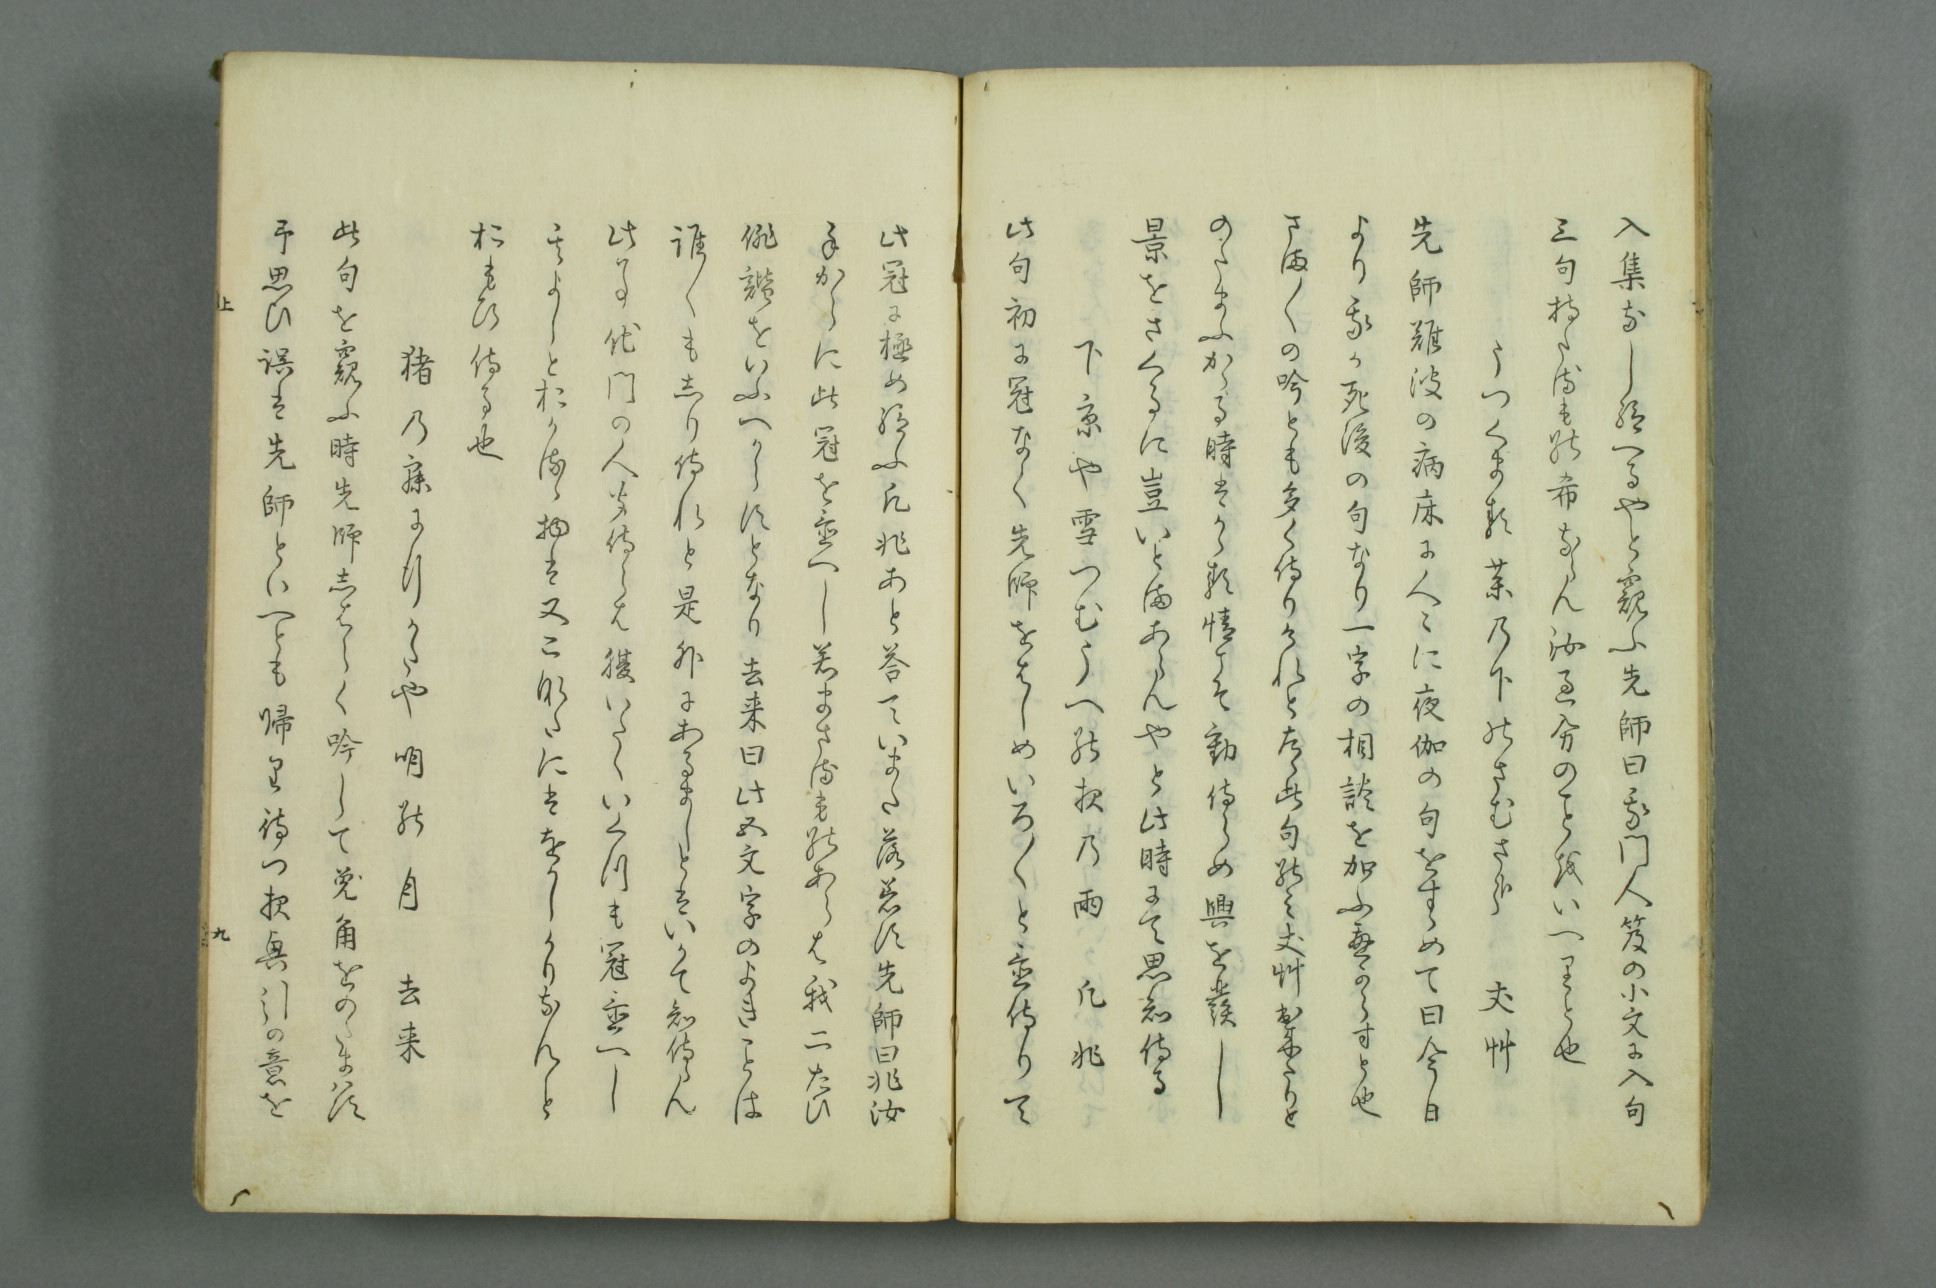 入集なし給へるやと窺ふ先師曰我門人笈の小文に入句
三句持たるもの希ならん汝過分のことをいへりと也
うつくまる薬の下のさむさ哉　丈艸
先師難波の病床に人々に夜伽の句をすゝめて曰今日
より我か死後の句なり一字の相談を加ふへからすと也
さま〱の吟とも多く侍りけれとたゝ此句のみ丈艸出来たりと
のたまふかゝる時はかゝる情こそ動侍らめ興を發し
景をさくるに豈いとまあらんやとは此時にて思知侍る
下京や雪つむうへの夜の雨　凡兆
此句初に冠なく先師をはしめいろ〱と置侍りて
此冠に極め給ふ凡兆あと答ていまた落着す先師曰兆汝
手からに此冠を置へし若まさるものあらは我二たひ
俳諧をいふへからすとなり去来曰此五文字のよきことは
誰〱もしり侍れと是外にあるましとはいかて知侍らん
此事他門の人聞侍らは腹いたくいくつも冠置へし
其よしとおかるゝ物は又こなたにはをかしかりなんと
おもひ侍る也
猪の寐に行かたや明の月　去来
此句を窺ふ時先師しはらく吟して兎角をのたまはす
予思ひ誤は先師といへとも帰り待つ夜興引の意を
上
九